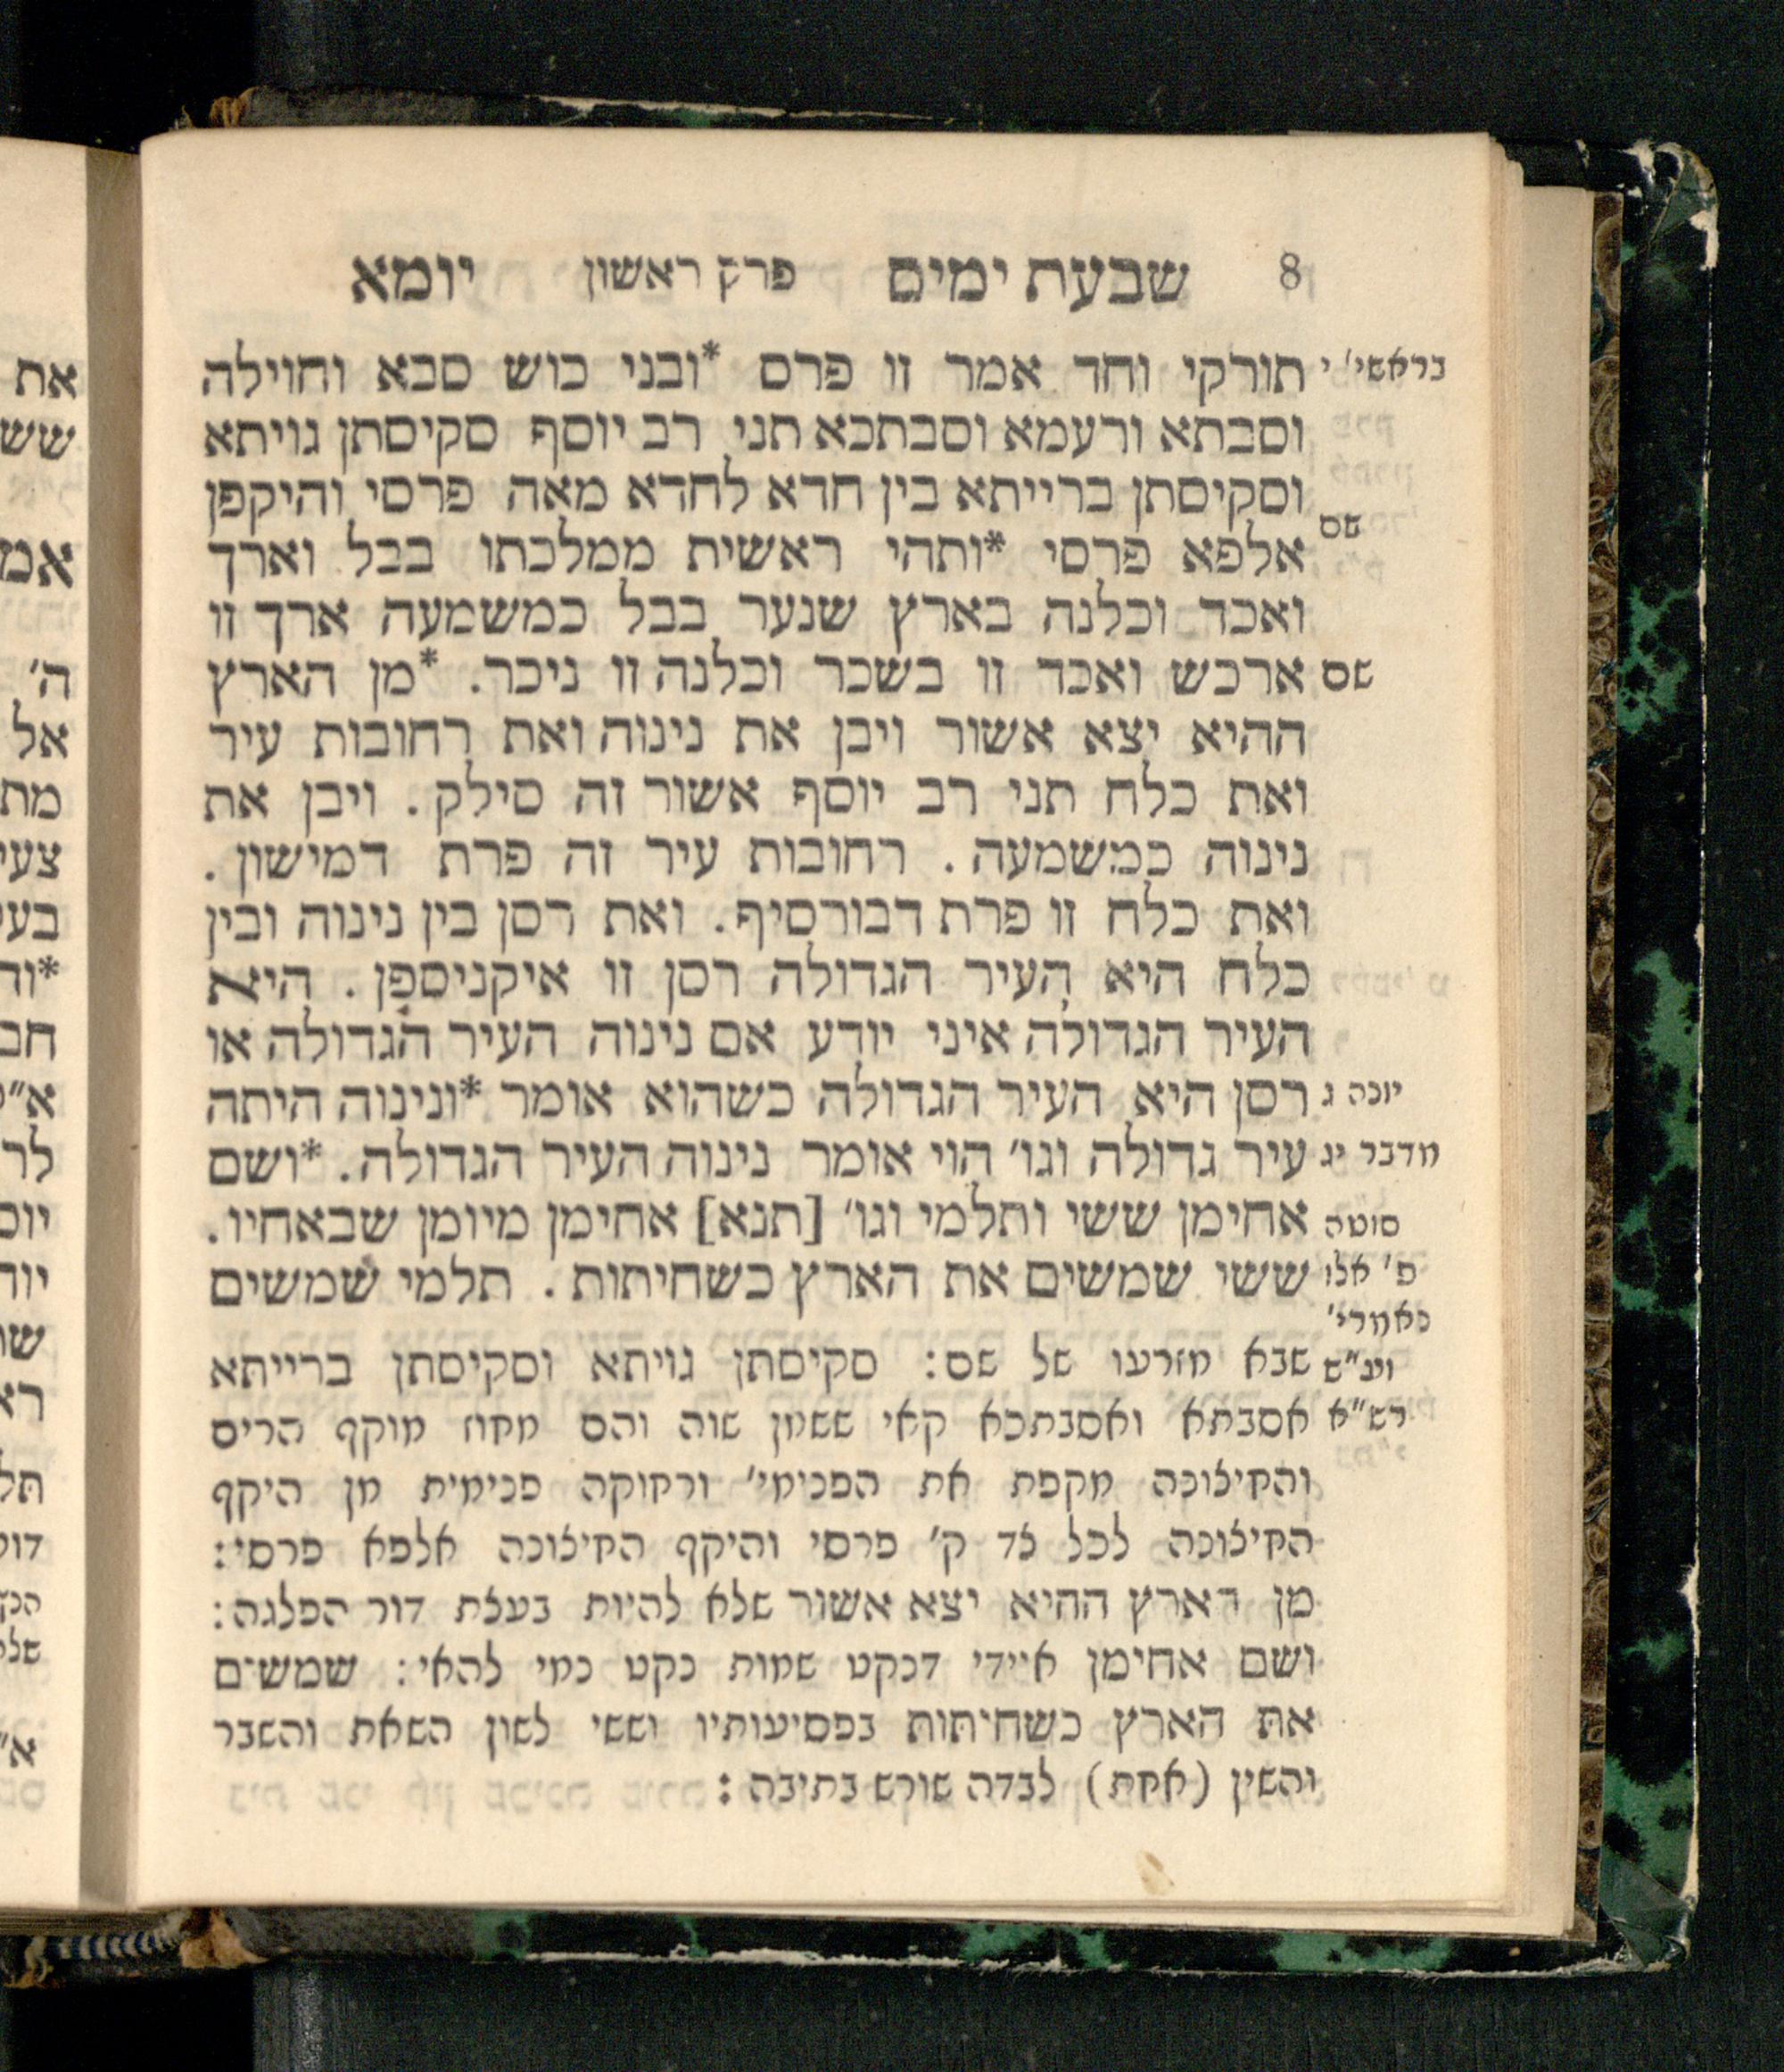 8 שבעת ימים פרק ראשון יומא
בראשי׳ י תורקי וחד אמר זו פרס *ובני כוש סבא וחוילה
וסבתא ורעמא וסבתכא תני רב יוסף סקיסתן גויתא
וסקיסתן ברייתא בין חדא לחדא מאה פרסי והיקפן
שם אלפא פרסי *ותהי ראשית ממלכתו בבל וארך
ואכד וכלנה בארץ שנער בבל כמשמעה ארך זו
שם ארכש ואכד זו בשכר וכלנה זו ניכר. *מן הארץ
ההיא יצא אשור ויבן את נינוה ואת רחובות עיר
ואת כלח תני רב יוסף אשור זה סילק. ויבן את
נינוה כמשמעה. רחובות עיר זה פרת דמישון.
ואת כלח זו פרת דבורסיף. ואת רסן בין נינוה ובין
כלח היא העיר הגדולה רסן זו איקניספן. היא
העיר הגדולה איני יודע אם נינוה העיר הגדולה או
יונה ג רסן היא העיר הגדולה כשהוא אומר *ונינוה היתה
מדבר יג עיר גדולה וגו׳ הוי אומר נינוה העיר הגדולה. *ושם
סוטה אחימן ששי ותלמי וגו׳ [תנא] אחימן מיומן שבאחיו.
פ׳ אלו ששי שמשים את הארץ כשחיתות. תלמי שמשים
נאמרי׳
ועי״ש שבא מזרעו של שם: סקיסתן גויתא וסקיסתן ברייתא
רש״א אסבתא ואסבתכא קאי ששמן שוה והם מחוז מוקף הרים
והחיצונה מקפת את הפנימי׳ ורחוקה פנימית מן היקף
החיצונה לכל צד ק׳ פרסי והיקף החיצונה אלפא פרסי:
מן הארץ ההיא יצא אשור שלא להיות בעצת דור הפלגה:
ושם אחימן איידי דנקט שמות נקט נמי להאי: שמשים
את הארץ כשחיתות בפסיעותיו וששי לשון השאת והשבר
והשין (אחת) לבדה שורש בתיבה: